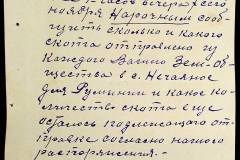 часов вечера сего
ноября Нарочным сооб-
щить сколько и какого
скота отправлено из
Каждого Вашего Земл. об-
щества в с. Нечаяное
для Румынии и какое ко-
личество скота еще
осталось подлежащаго от-
правке согласно нашего
распоряжения.-